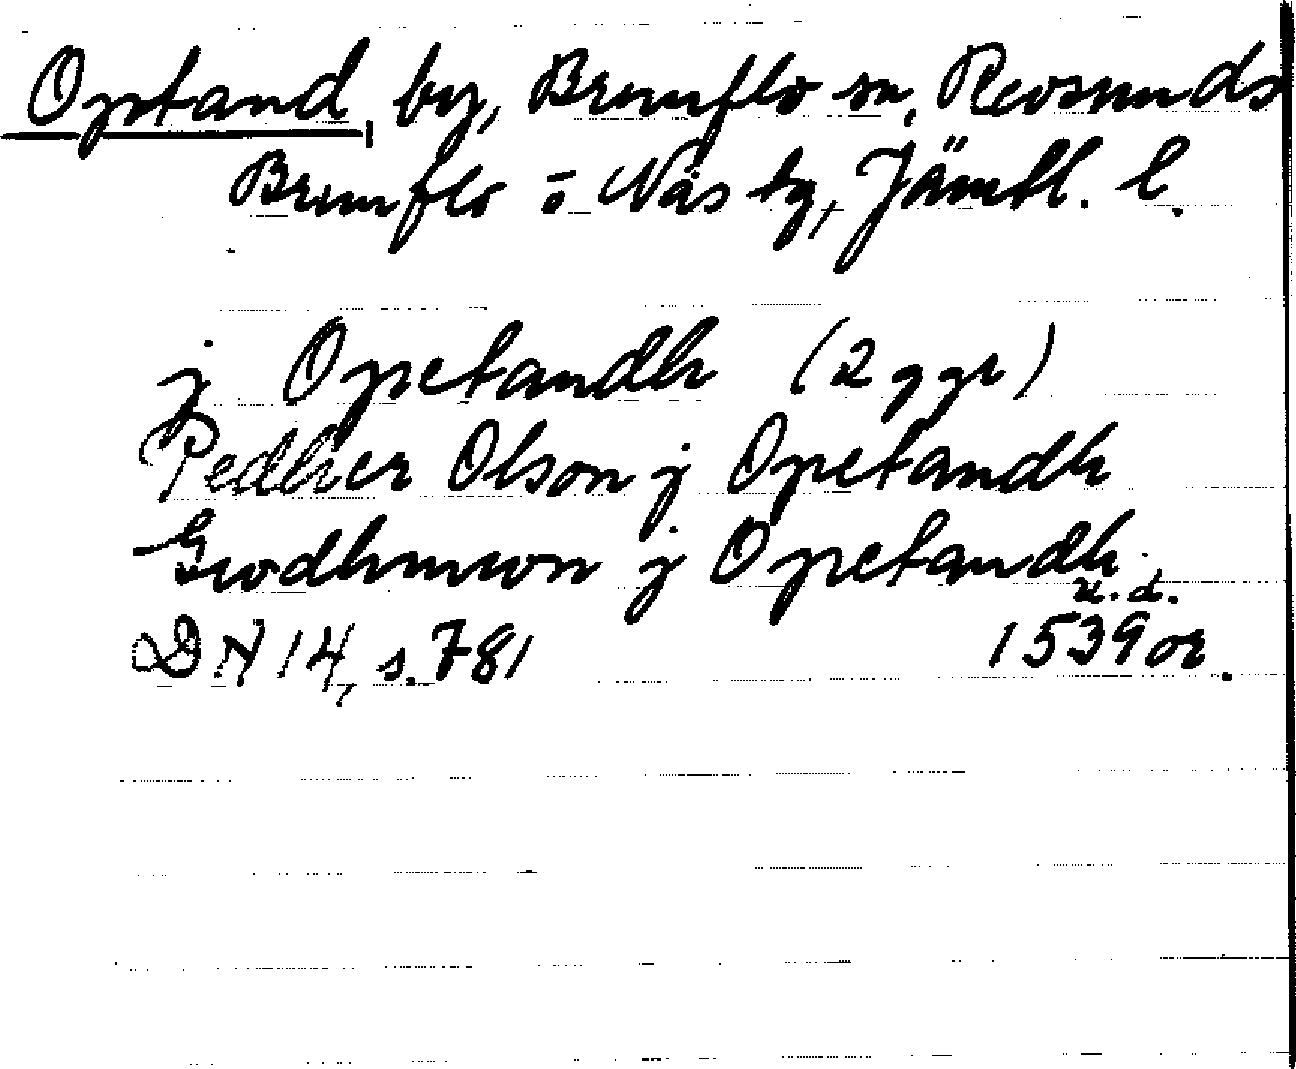 Opstand, by, Brunflo sn, Revsunds
Brunflo o Näs tg, Jämtl. l.
j Opetandh (2 ggr)
Pedher Olson j Opetandh
Gwdhmwon j Opetandh
u.d.
DN 14, s. 781 1539 or.